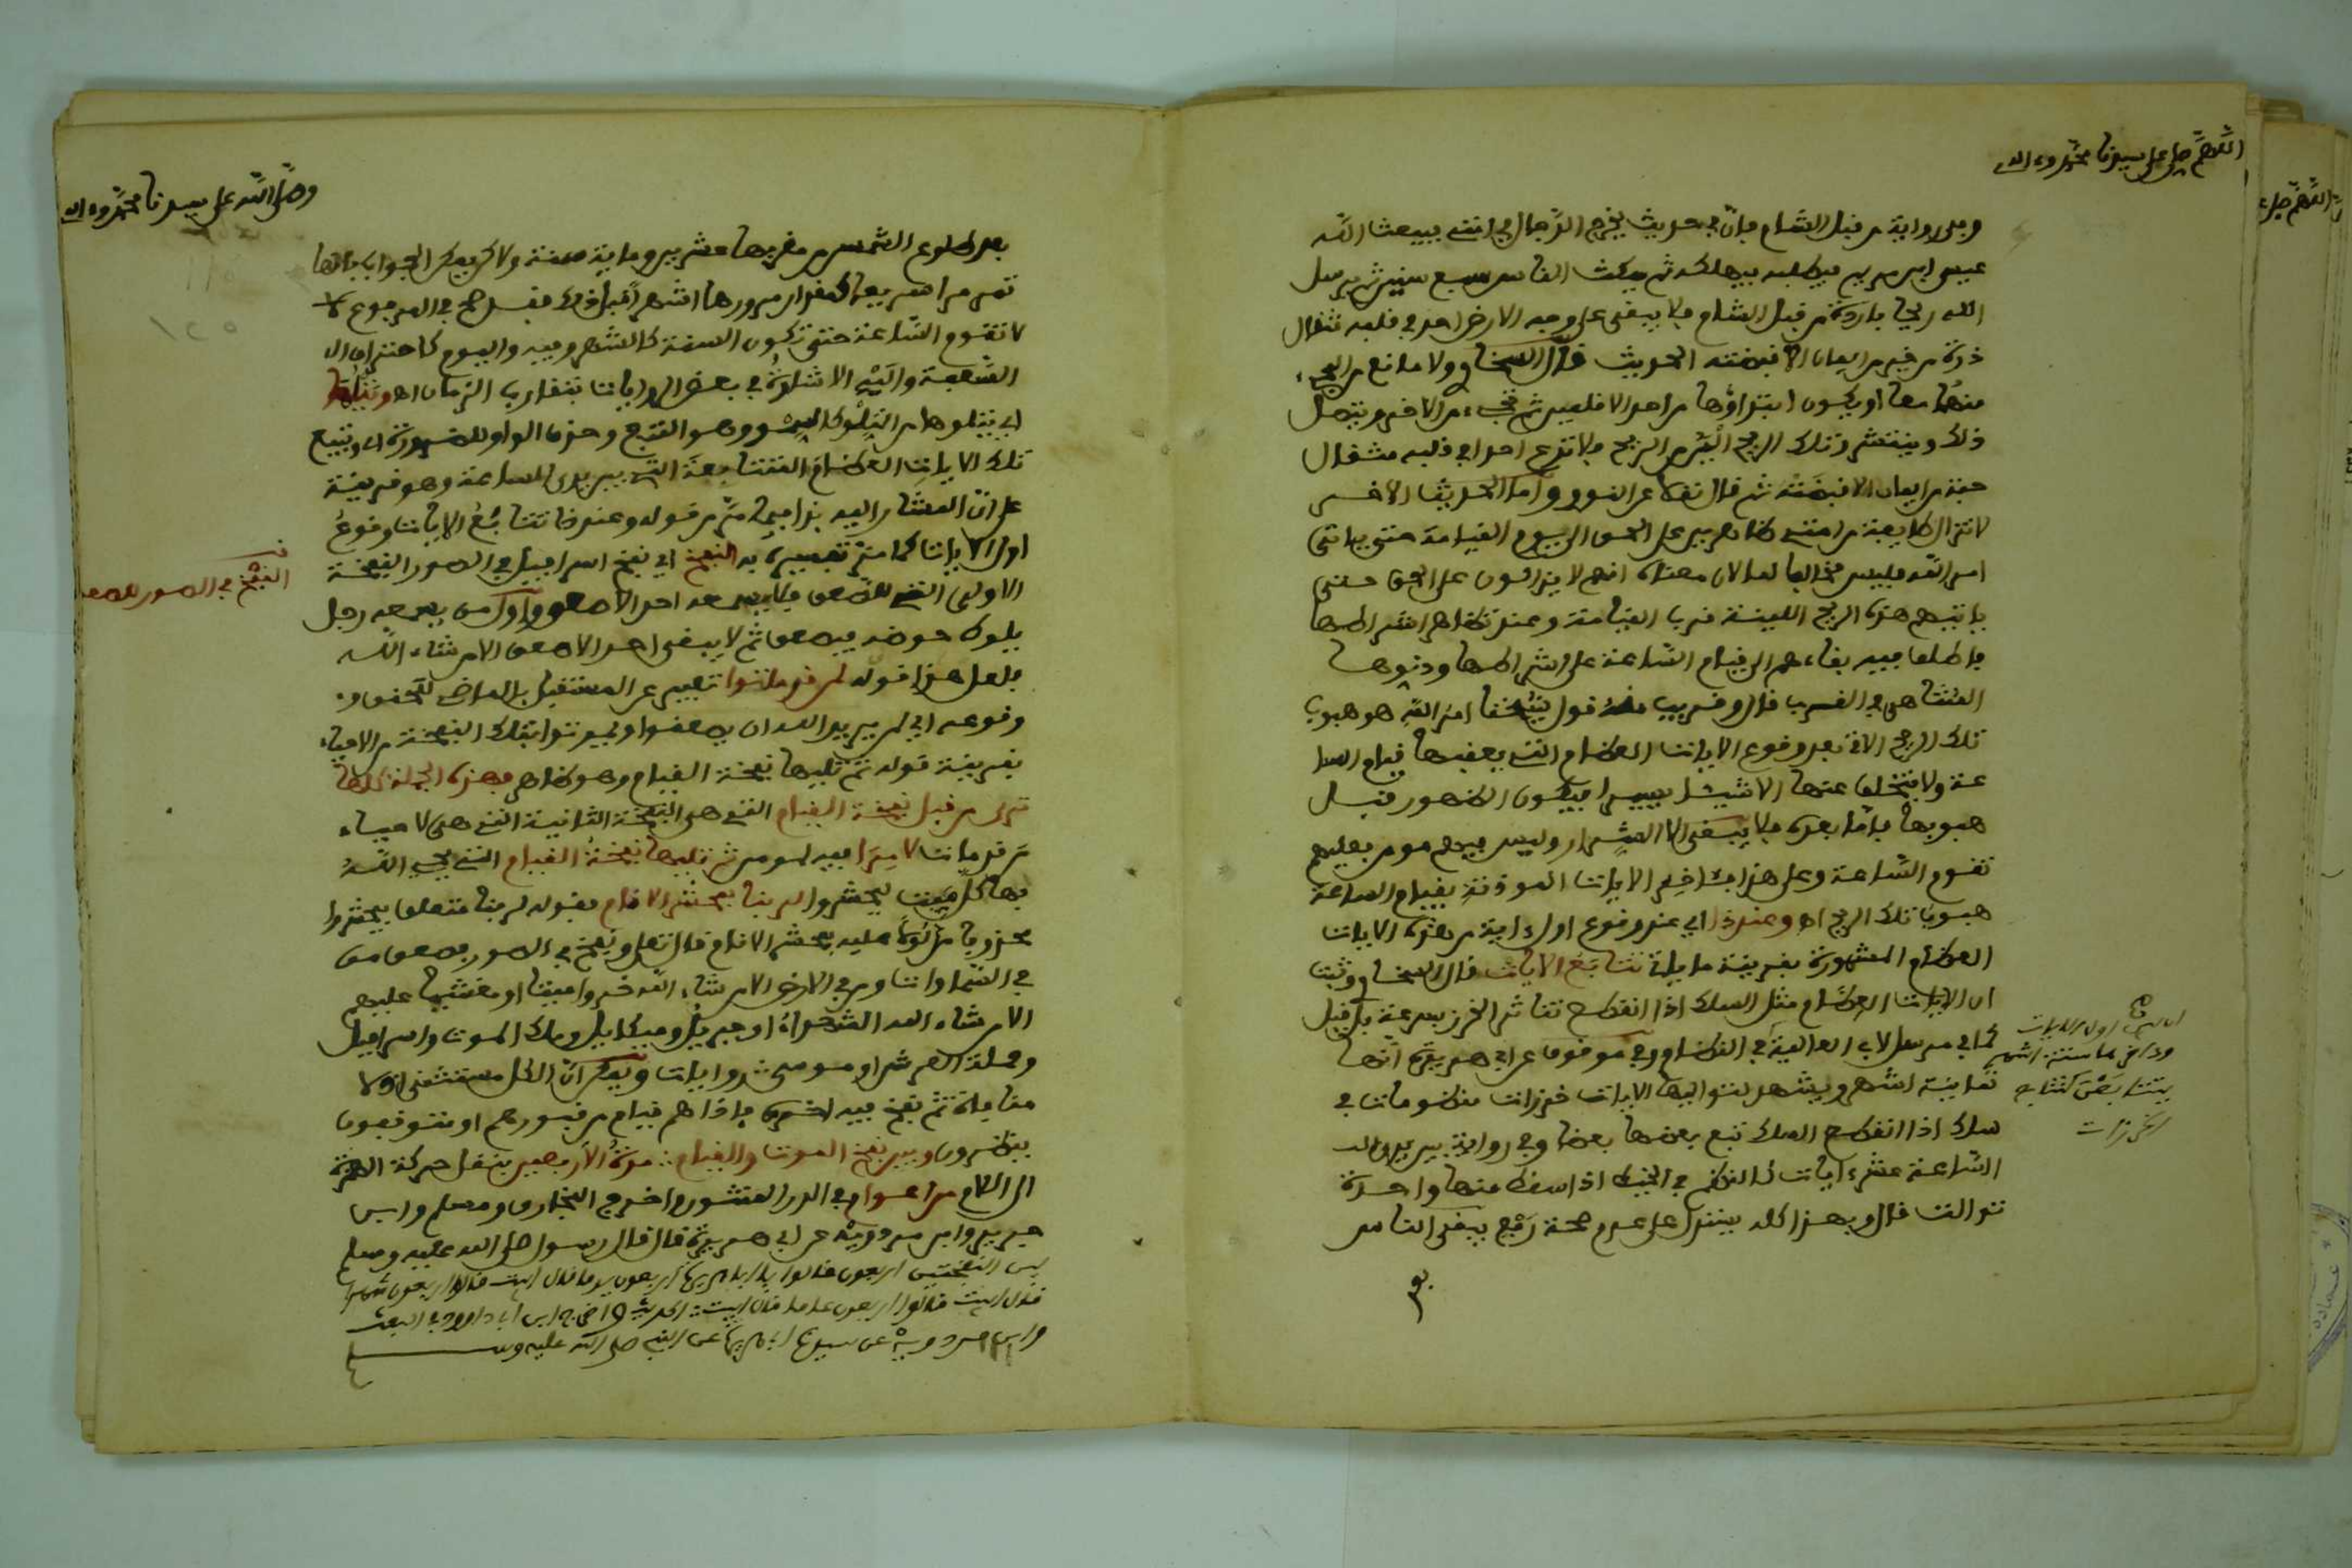 اللهم صل على سيدنا محمد وءاله
وفي رواية من قبل الشام فان في حديث يخرج الدجال في امتي فيبعث الله
عيسى ابن مريم فيطلبه فيهلكه ثم يمكث الناس سبع سنين ثم يرسل
الله ريحا باردة من قبل الشام فلا يبقى على وجه الارض احد في قلبه مثقال
ذرة من خير من ايمان الا قبضته الحديث قال السخاوي ولا مانع من المجيء
منهما معا او يكون ابتداؤها من احد الاقليمين ثم تجيء من الاخر ويتصل
ذلك وينتشر وتلك الريح الين من الريح فلا تدع احدا في قلبه مثقال
حبة من ايمان الا قبضته ثم قال نقلا عن النووي واما الحديث الاخر
لا تزال طايفة من امتي ظاهرين على الحق الى يوم القيامة حتى ياتي
امر الله فليس مخالفا لها لان معناه انهم لا يزالون على الحق حتى
ياتيهم هذه الريح اللينة قرب القيامة وعند تظاهر اشراطها
فاطلق فيه بقاءهم الى قيام الساعة على اشراطها ودنوها
المتناهي في القرب قال وقريب منه قول شيخنا امر الله هو هبوب
تلك الريح الاتي بعد وقوع الايات العظام التي يعقبها قيام السا
عة ولا يتخلف عنها الا شيئا يسيرا فيكون الظهور قبل
هبوبها فاما بعده فلا يبقى الا الشرار وليس فيهم مومن فعليهم
تقوم الساعة وعلى هذا فآخر الايات الموذنة بقيام الساعة
هبوب تلك الريح اه وعند ذا اي عند وقوع اول اية من هذه الايات
العظام المشهورة بقرينة ما ياتي تتابع الايات قال السخاوي وثبت
ان الايات العظام مثل السلك اذا انقطع تناثر الخرز بسرعة بل قيل
كما في مرسل لابي العالية في العظام وفي موقوف عن ابي هريرة انها
ثمانية اشهر ويشهد لتواليها الايات خرزات منظومات في
سلك اذا انقطع السلك تبع بعضها بعضا وفي رواية بين يدي
الساعة عشر ايات كالنظم في الخيط اذا سقط منها واحدة
توالت قال وبهذا كله يتنزل على عدم صحة رفع يبقى الناس
اول الايات
وءاخرها ستة اشهر
يتتابعن كتتابع
الخرزات
وصلى الله على سيدنا محمد وءاله
بعد طلوع الشمس من مغربها عشرين وماية سنة ولاكن يمكن الجواب بانها
تمر مرا سريعا كمقدار مرورها اشهرا قبل ذلك فقد صح في المرفوع
لا تقوم الساعة حتى تكون السنة كالشهر وفيه واليوم كاحتراق
السعفة واليه الاشارة في بعض الروايات بتقارب الزمان اه وتتلو
اي يتلوها من التلو وهو التتبع وحذف الواو للضرورة اي وتتبع
تلك الايات العظام المتتابعة التي بين يدي الساعة وهو قرينة
على ان المشار اليه بذا فيما مر من قوله وعند ذا تتابع الايات وقوع
اول الايات كما مر تفسيره به النفخ اي نفخ اسرافيل في الصور النفخة
الاولى التي للصعق فلا يسمعه احد الا صعق واول من يسمعه رجل
يلوط حوضه فيصعق ثم لا يبقى احد الا صعق الا من شاء الله
فلعل هذا قوله لمن قد ماتوا تعبير عن المستقبل بالماضي لتحقق
وقوعه اي لمن يريد الله ان يصعقوا ويموتوا بتلك النفخة من الاحياء
بقرينة قوله ثم تليها نفخة القيام وهو ظاهر فهذه الجملة كلها
ترى من قبل نفخة القيام التي هي النفخة الثانية التي هي لاحياء
من قد مات لا مرا فيه لمومن ثم تليها نفخة القيام التي يحيي الله
بها كل ميت ليحشروا لربنا بمحشر الانام فقوله لربنا متعلق بيحشروا
محذوفا مدلولا عليه بمحشر الانام قال تعالى ونفخ في الصور فصعق من
في السماوات ومن في الارض الا من شاء الله خروا ميتا او مغشيا عليهم
الا من شاء الله الشهداء او جبريل وميكايل وملك الموت واسرافيل
وحملة العرش او موسى روايات ويمكن ان الكل مستثنى اولا
منافاة ثم نفخ فيه اخرى فاذا هم قيام من قبورهم او متوقفون
ينظرون وبين نفخ الموت والقيام مدة الاربعين بنقل حركة الهمزة
الى اللام من اعوام في الدر المنثور اخرج البخاري ومسلم وابن
جرير وابن مردويه عن ابي هريرة قال قال رسول صلى الله عليه وسلم
بين النفختين اربعون قالوا يا ابا هريرة اربعون يوما قال ابيت قالوا اربعون شهرا
قال ابيت قالوا اربعون عاما قال ابيت الحديث واخرج ابن ابي داوود في البعث
وابن مردويه عن سيدنا ابي هريرة عن النبي صلى الله عليه وسلم
النفخ في الصور للصعق